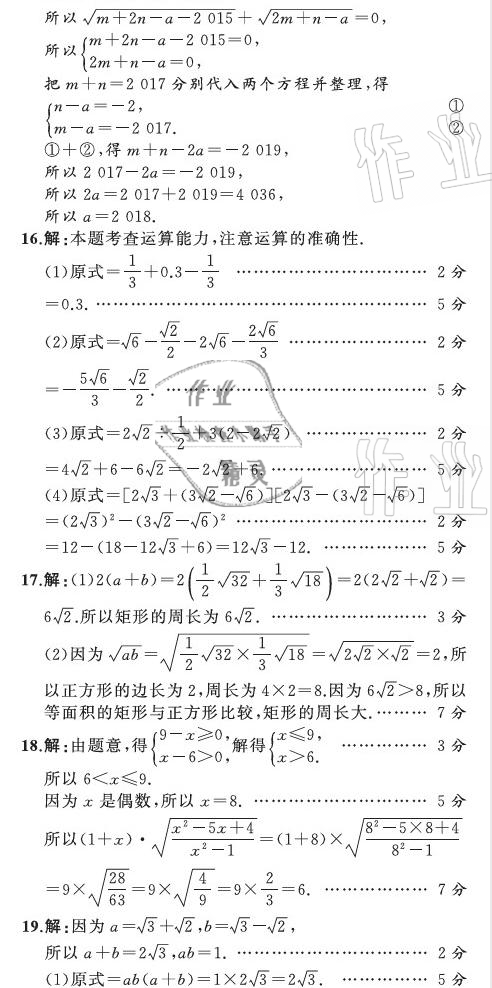 所以 √(m+2n-a-2 015) + √(2m+n-a) =0,
所以{m+2n-a-2 015=0,
2m+n-a=0,
把 m+n=2 017 分别代入两个方程并整理,得
{n-a=-2, ①
m-a=-2 017. ②
①+②,得 m+n-2a=-2 019,
所以 2 017-2a=-2 019,
所以 2a=2 017+2 019=4 036,
所以 a=2 018.
16.解:本题考查运算能力,注意运算的准确性.
(1)原式=1/3+0.3-1/3 ……………………………… 2 分
=0.3. ……………………………………………… 5 分
(2)原式=√6-√2/2-2√6-2√6/3 ……………………… 2 分
=-5√6/3-√2/2. ……………………………………… 5 分
(3)原式=2√2÷1/2+3(2-2√2) …………………… 2 分
=4√2+6-6√2=-2√2+6. ………………………… 5 分
(4)原式=[2√3+(3√2-√6)][2√3-(3√2-√6)]
=(2√3)²-(3√2-√6)² ……………………………… 2 分
=12-(18-12√3+6)=12√3-12. ………………… 5 分
17.解:(1)2(a+b)=2(1/2√32+1/3√18)=2(2√2+√2)=
6√2.所以矩形的周长为 6√2. ………………………… 3 分
(2)因为 √ab=√(1/2√32×1/3√18)=√(2√2×√2)=2,所
以正方形的边长为 2,周长为 4×2=8.因为 6√2>8,所以
等面积的矩形与正方形比较,矩形的周长大.……… 7 分
18.解:由题意,得{9-x≥0, x-6>0,解得{x≤9, x>6. …………… 3 分
所以 6<x≤9.
因为 x 是偶数,所以 x=8. ………………………… 5 分
所以(1+x)·√((x²-5x+4)/(x²-1))=(1+8)×√((8²-5×8+4)/(8²-1))
=9×√(28/63)=9×√(4/9)=9×2/3=6. ……………… 7 分
19.解:因为 a=√3+√2,b=√3-√2,
所以 a+b=2√3,ab=1. ……………………………… 2 分
(1)原式=ab(a+b)=1×2√3=2√3. …………… 5 分
作业
作业
作业
精灵